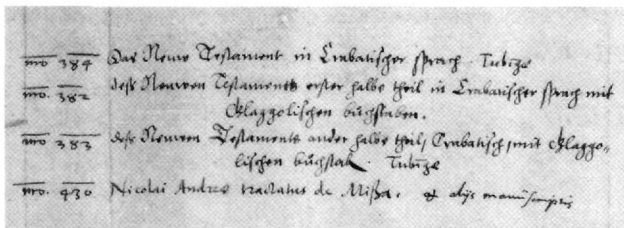 mo 384 Das Neuw Testament in Crabatischer sprach. Tubize
mo. 382 dess Neuwen Testaments erster halbe theil in Crabatischer sprach mit
Glaggolischen buchstaben.
mo 383 dess Neuwen Testaments ander halbe theil, Crabatisch, mit Glaggo-
lischen buchstab. Tubize
mo. 430 Nicolai Andreæ tractatus de Missa. & alijs manuscriptis